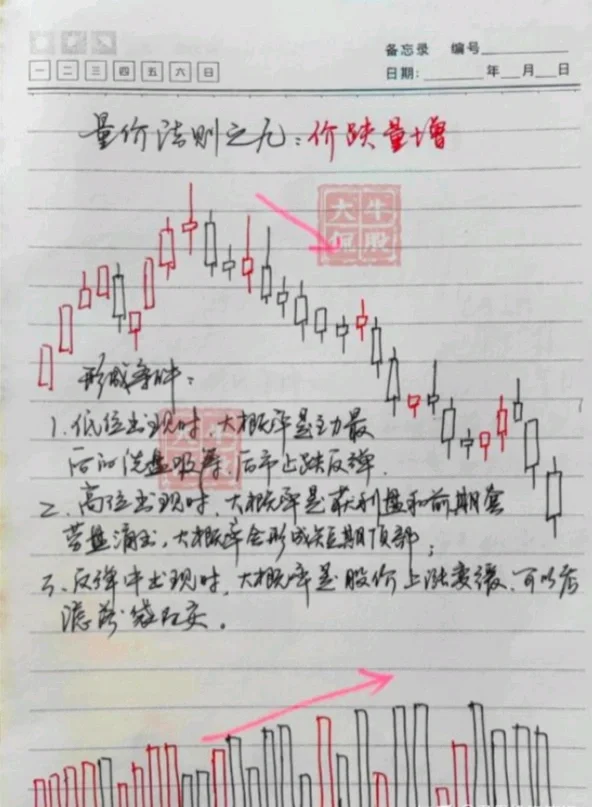 备忘录 编号
一 二 三 四 五 六 日
日期： 年 月 日
量价法则之九：价跌量增
大牛
侃股
形成条件：
1、低位出现时，大概率是主力最
后的洗盘吸筹，后市止跌反弹.
2、高位出现时，大概率是获利盘和前期套
劳盘涌出，大概率会形成短期顶部；
3、反弹中出现时，大概率是股价上涨变缓，可以考
虑落袋为安。